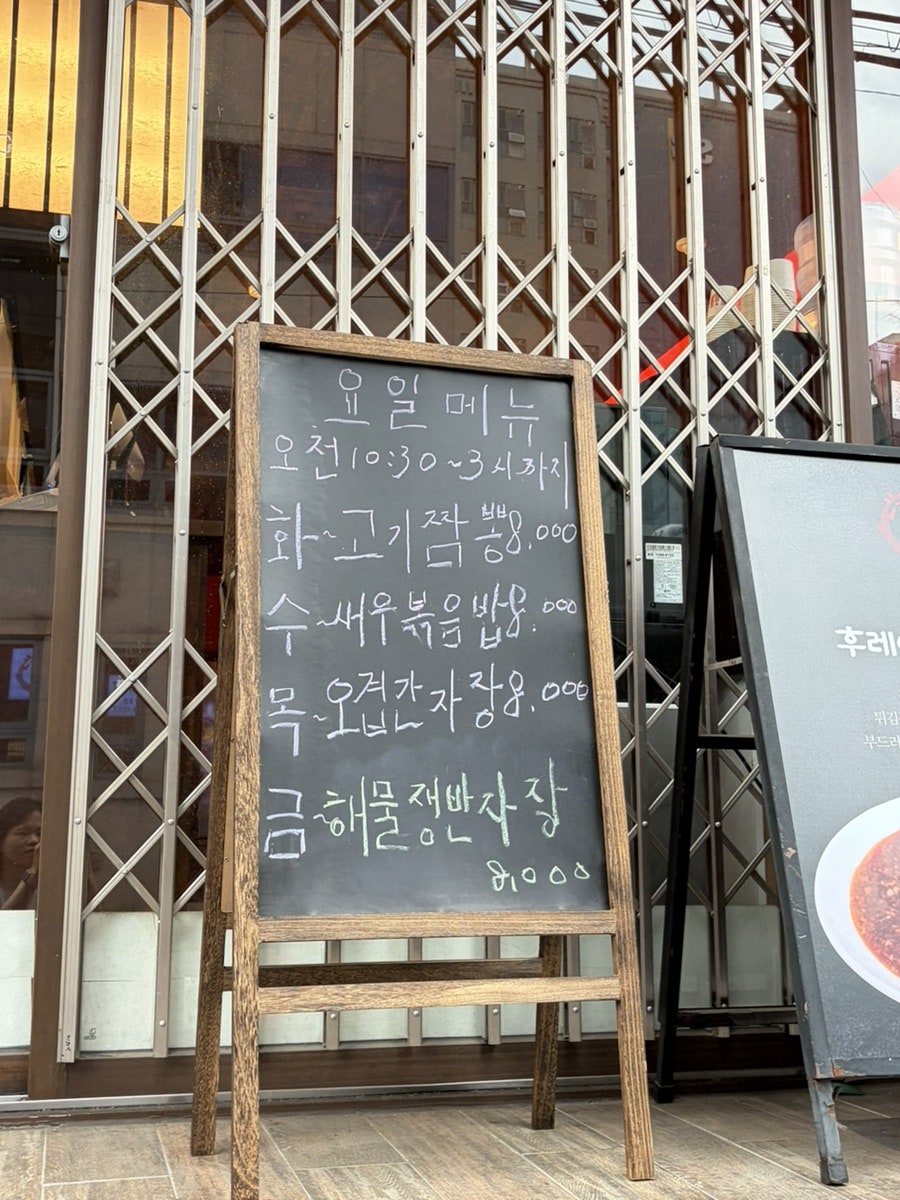 요일 메뉴
오전 10:30~3시까지
화~고기짬뽕 8,000
수~새우볶음밥 8,000
목~오겹간자장 8,000
금~해물쟁반자장
8,000
후레
튀김
부드러